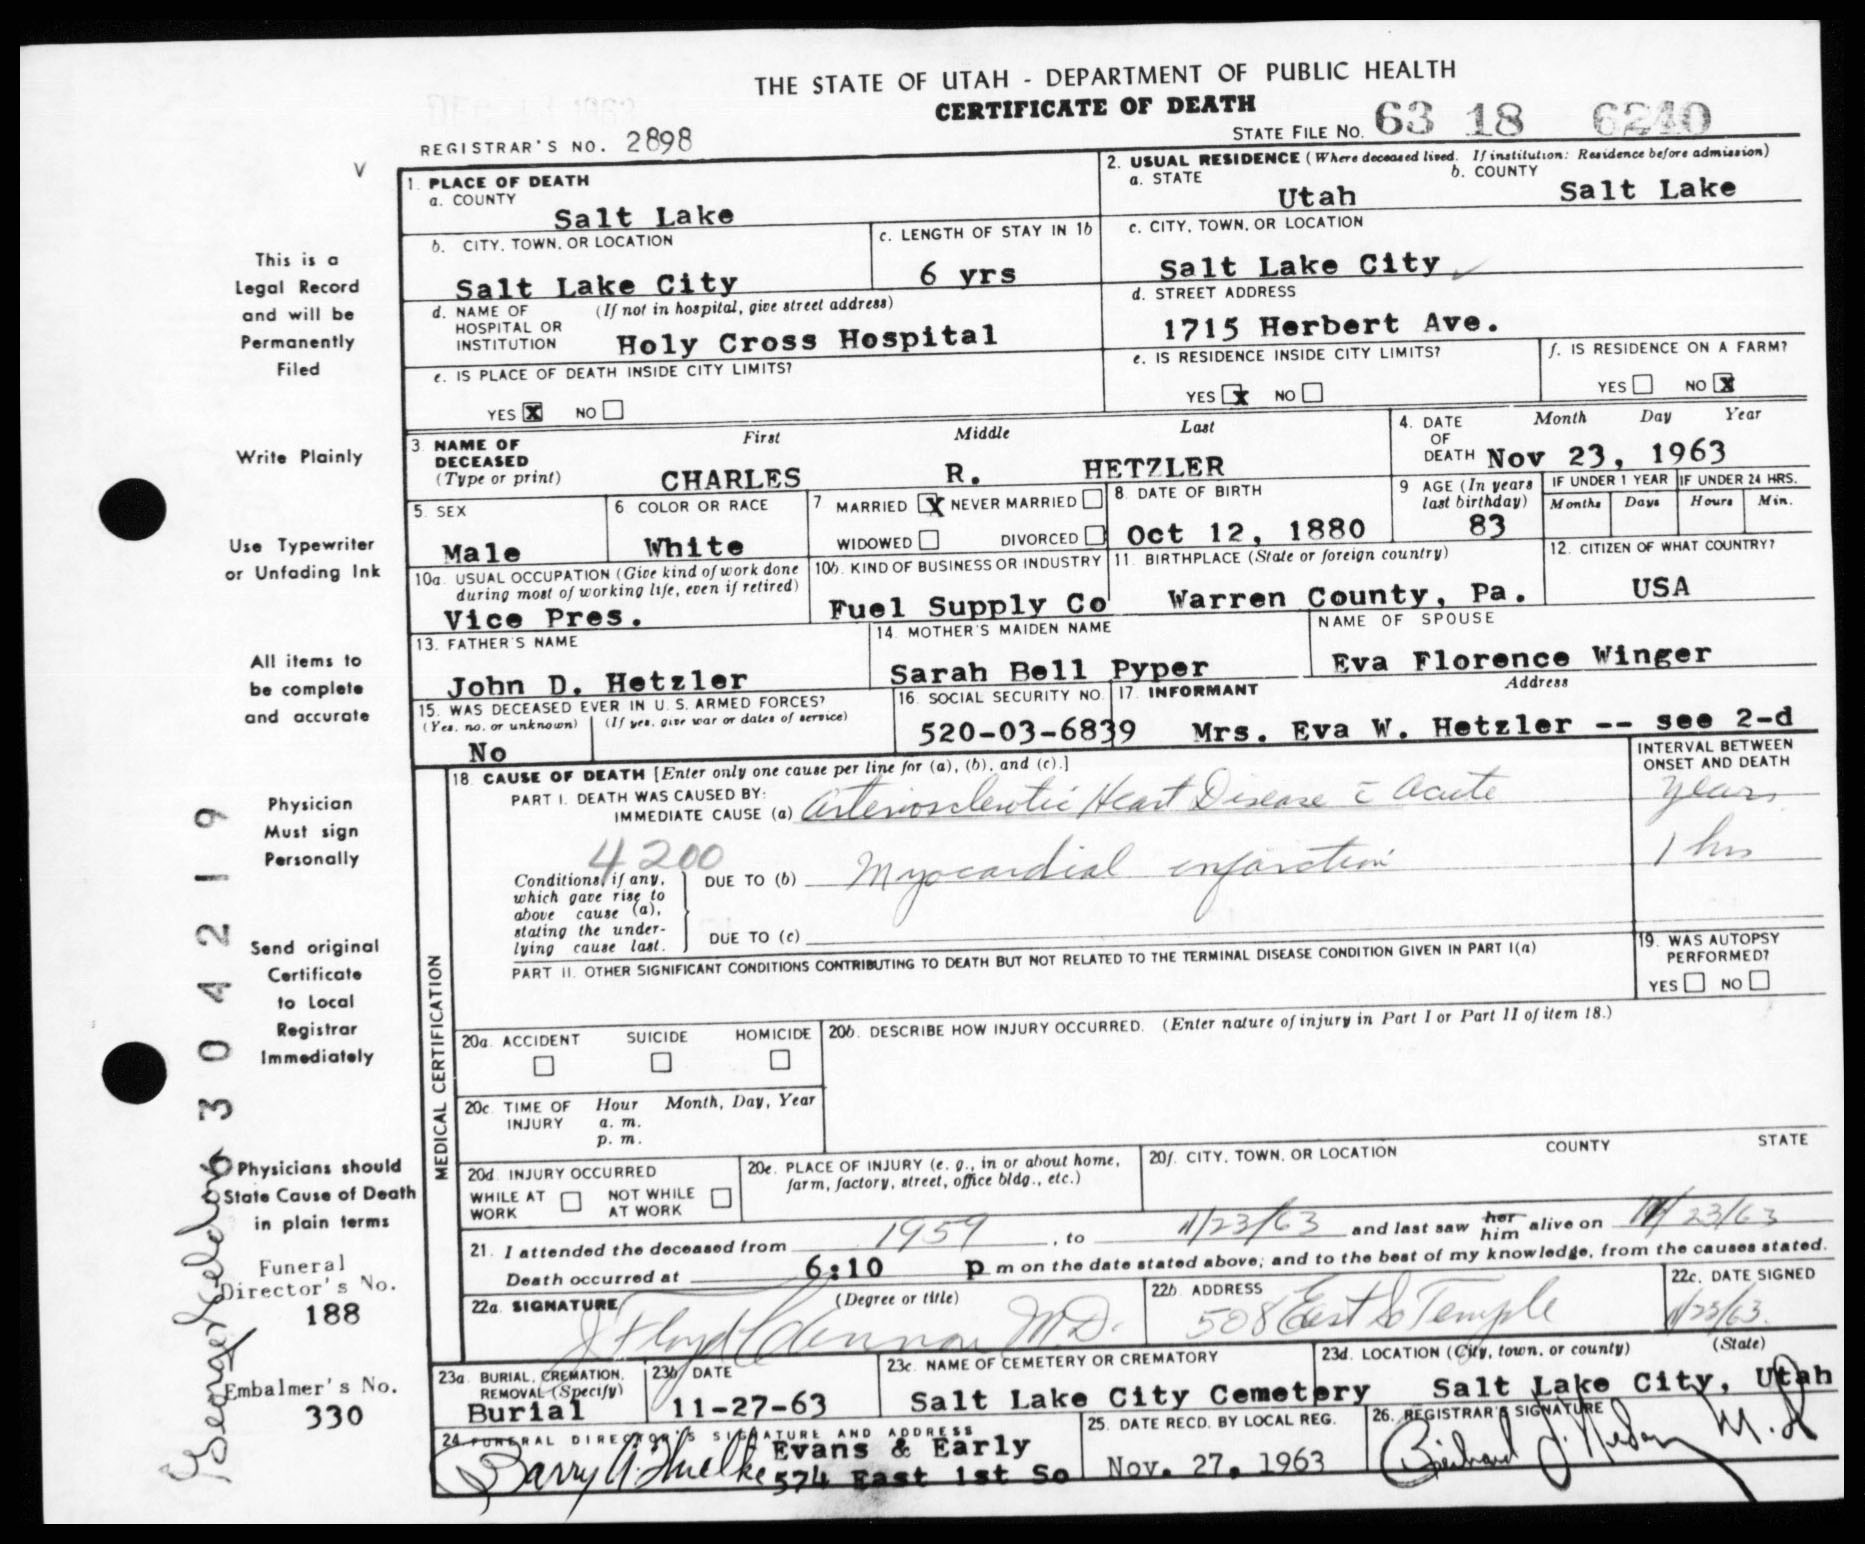 THE STATE OF UTAH - DEPARTMENT OF PUBLIC HEALTH
CERTIFICATE OF DEATH
REGISTRAR'S NO. 2898
STATE FILE NO. 63 18 6240
V
1. PLACE OF DEATH
a. COUNTY
Salt Lake
2. USUAL RESIDENCE (Where deceased lived. If institution: Residence before admission)
a. STATE
Utah
b. COUNTY
Salt Lake
b. CITY, TOWN, OR LOCATION
Salt Lake City
c. LENGTH OF STAY IN 1b
6 yrs
c. CITY, TOWN, OR LOCATION
Salt Lake City
d. NAME OF HOSPITAL OR INSTITUTION
(If not in hospital, give street address)
Holy Cross Hospital
d. STREET ADDRESS
1715 Herbert Ave.
e. IS PLACE OF DEATH INSIDE CITY LIMITS?
YES X NO
e. IS RESIDENCE INSIDE CITY LIMITS?
YES X NO
f. IS RESIDENCE ON A FARM?
YES NO X
3. NAME OF DECEASED
(Type or print)
First Middle Last
CHARLES R. HETZLER
4. DATE OF DEATH
Month Day Year
Nov 23, 1963
5. SEX
Male
6 COLOR OR RACE
White
7. MARRIED X NEVER MARRIED
WIDOWED DIVORCED
8. DATE OF BIRTH
Oct 12, 1880
9 AGE (In years last birthday)
83
IF UNDER 1 YEAR
Months Days
IF UNDER 24 HRS.
Hours Min.
10a. USUAL OCCUPATION (Give kind of work done during most of working life, even if retired)
Vice Pres.
10b. KIND OF BUSINESS OR INDUSTRY
Fuel Supply Co
11. BIRTHPLACE (State or foreign country)
Warren County, Pa.
12. CITIZEN OF WHAT COUNTRY?
USA
13. FATHER'S NAME
John D. Hetzler
14. MOTHER'S MAIDEN NAME
Sarah Bell Pyper
NAME OF SPOUSE
Eva Florence Winger
15. WAS DECEASED EVER IN U.S. ARMED FORCES?
(Yes, no, or unknown) (If yes, give war or dates of service)
No
16. SOCIAL SECURITY NO.
520-03-6839
17. INFORMANT
Address
Mrs. Eva W. Hetzler -- see 2-d
MEDICAL CERTIFICATION
18. CAUSE OF DEATH [Enter only one cause per line for (a), (b), and (c).]
INTERVAL BETWEEN ONSET AND DEATH
PART I. DEATH WAS CAUSED BY:
IMMEDIATE CAUSE (a) Arteriosclerotic Heart Disease c̄ Acute
years
4200
Conditions, if any, which gave rise to above cause (a), stating the underlying cause last.
DUE TO (b) Myocardial infarction
1 hr
DUE TO (c)
PART II. OTHER SIGNIFICANT CONDITIONS CONTRIBUTING TO DEATH BUT NOT RELATED TO THE TERMINAL DISEASE CONDITION GIVEN IN PART I(a)
19. WAS AUTOPSY PERFORMED?
YES NO
20a. ACCIDENT SUICIDE HOMICIDE
20b. DESCRIBE HOW INJURY OCCURRED. (Enter nature of injury in Part I or Part II of item 18.)
20c. TIME OF INJURY
Hour Month, Day, Year
a. m.
p. m.
20d. INJURY OCCURRED
WHILE AT WORK NOT WHILE AT WORK
20e. PLACE OF INJURY (e. g., in or about home, farm, factory, street, office bldg., etc.)
20f. CITY, TOWN, OR LOCATION COUNTY STATE
21. I attended the deceased from 1959, to 11/23/63 and last saw her him alive on 11/23/63
Death occurred at 6:10 p m on the date stated above; and to the best of my knowledge, from the causes stated.
22a. SIGNATURE (Degree or title)
J Floyd Cannon M.D.
22b. ADDRESS
508 East So Temple
22c. DATE SIGNED
11/25/63
23a. BURIAL, CREMATION, REMOVAL (Specify)
Burial
23b. DATE
11-27-63
23c. NAME OF CEMETERY OR CREMATORY
Salt Lake City Cemetery
23d. LOCATION (City, town, or county) (State)
Salt Lake City, Utah
24. FUNERAL DIRECTOR'S SIGNATURE AND ADDRESS
Evans & Early
574 East 1st So
25. DATE RECD. BY LOCAL REG.
Nov. 27, 1963
26. REGISTRAR'S SIGNATURE
M.D.
This is a
Legal Record
and will be
Permanently
Filed
Write Plainly
Use Typewriter
or Unfading Ink
All items to
be complete
and accurate
Physician
Must sign
Personally
Send original
Certificate
to Local
Registrar
Immediately
Physicians should
State Cause of Death
in plain terms
Funeral
Director's No.
188
Embalmer's No.
330
304219